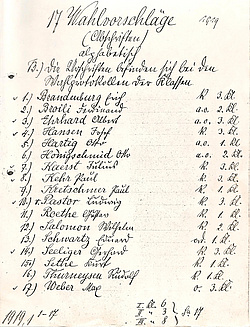 17 Wahlvorschläge 1919
(Abschriften)
alphabetisch
B.) Die Abschriften befinden sich bei den
Wahlprotokollen der Klassen
1.) Brandenburg Erich k. 3. kl.
2.) Broili Ferdinand a.o. 2. kl.
3.) Ehrhard Albert a.o. 3. kl.
4.) Hansen Josef k. 3. kl.
5.) Hartig Otto a.o. 1. kl.
6.) Hönigschmid Otto a.o. 2. kl.
7.) Julius k. kl.
8.) Kehr Paul k. kl.
9.) Kretschmer Paul k. 1. kl.
10.) Pastor Ludwig k. 3. kl.
11.) Roethe Gustav k. 1. kl.
12.) Salomon Wilhelm k. 2. kl.
13.) Schwartz Eduard 1. kl.
14.) Seeliger Gerhard k. 3. kl.
15.) Sethe Kurt k. 1. kl.
16.) Thurneysen Rudolf k. 1. kl.
17.) Weber Max o. 3. kl.
1919, 1-17
I. kl. 6
II " 3
III " 8
Sa 17